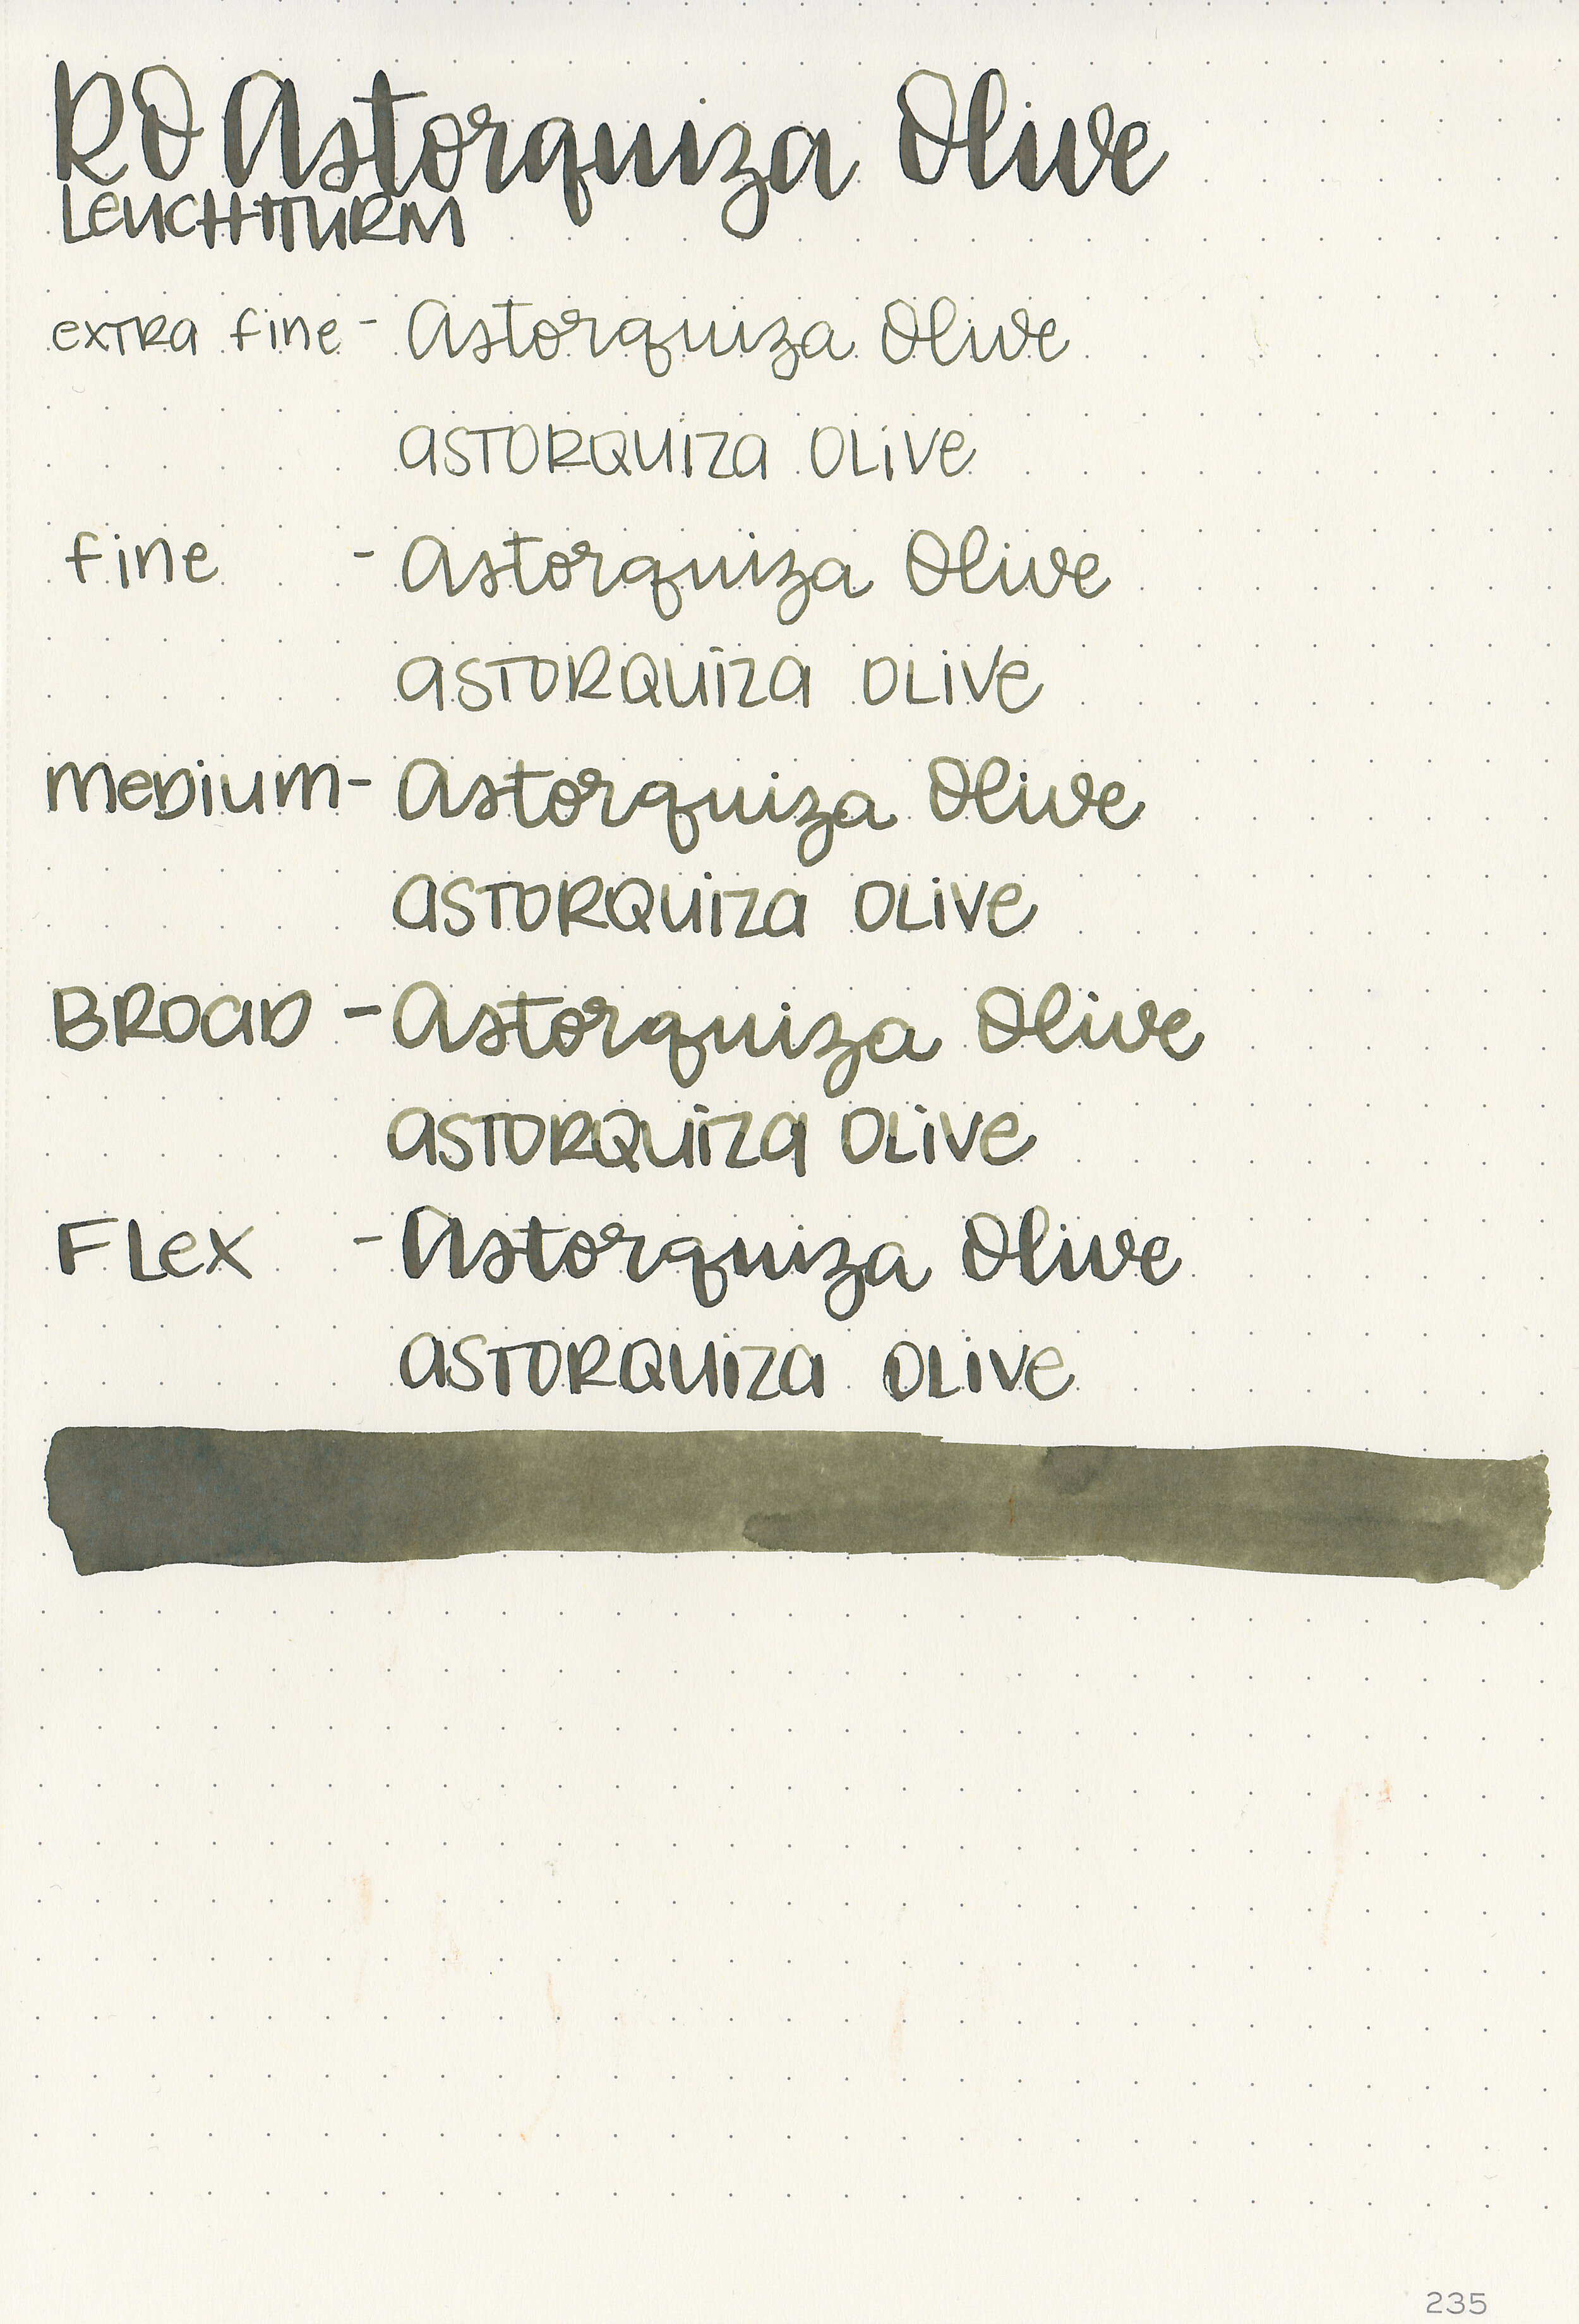 RO Astorquiza Olive
LEUCHTTURM
extra fine - Astorquiza Olive
ASTORQUIZA OLIVE
fine - Astorquiza Olive
ASTORQUIZA OLIVE
Medium - Astorquiza Olive
ASTORQUIZA OLIVE
BROAD - Astorquiza Olive
ASTORQUIZA OLIVE
Flex - Astorquiza Olive
ASTORQUIZA OLIVE
235